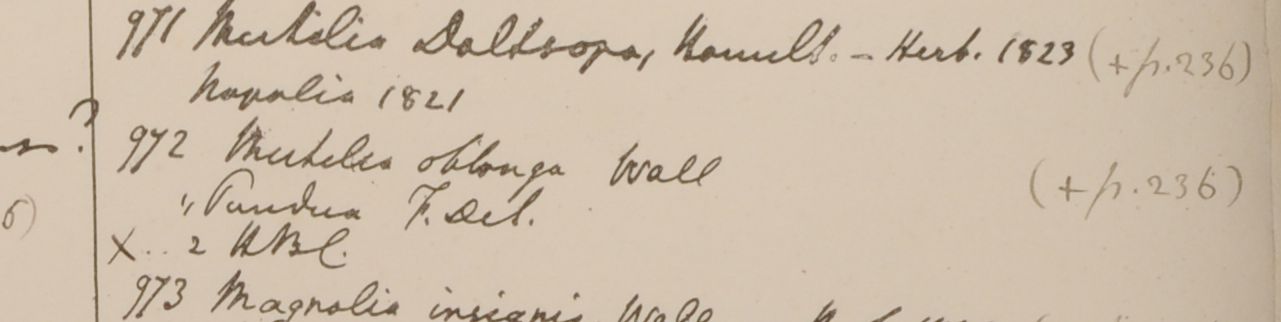 971 Michelia Doltsopa, Hamilt. - Herb. 1823 (+p.236)
Napalia 1821
?
972 Michelia oblonga Wall (+p.236)
" Pundua F. Des.
6)
X.. 2 HBC.
973 Magnolia insignis Wall